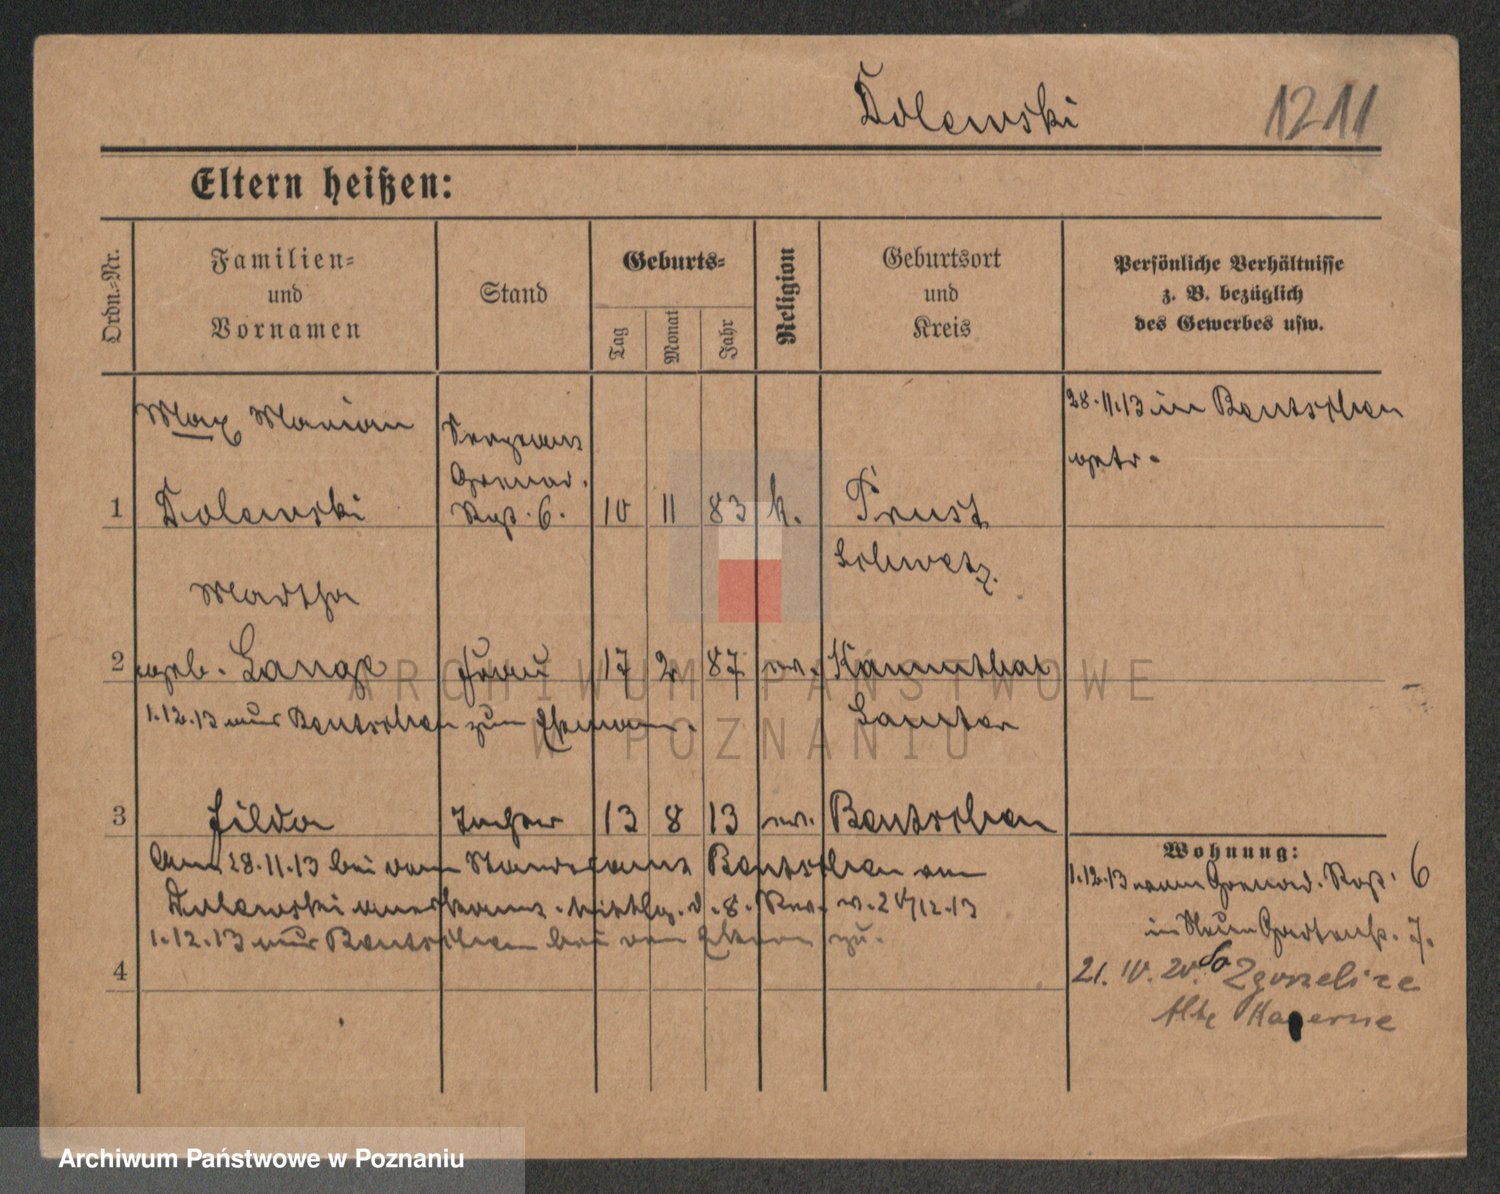 Dolewski 1211
Eltern heißen:
Ordn.-Nr.
Familien-
und
Vornamen
Stand
Geburts-
Tag
Monat
Jahr
Religion
Geburtsort
und
Kreis
Persönliche Verhältnisse
z. B. bezüglich
des Gewerbes usw.
Max Marian
Sergeant
Grenad.
28.11.13 in Bentschen
getr.
1 Dolewski Regt. 6. 10 11 83 k. Prust
Schwetz.
Martha
2 geb. Lange Frau 17 2 87 ev. Kammthal
1.12.13 aus Bentschen zum Ehemann. Samter
3 Hilda Tochter 13 8 13 ev. Bentschen
am 28.11.13 bei dem Standesamt Bentschen von
Dolewski anerkannt.
1.12.13 aus Bentschen bei den Eltern zu.
4
Wohnung:
1.12.13 vom Grenad. Regt. 6
in Neue Gartenstr. 7.
21. IV. 20. Zgorzelice
Alte Kaserne
ARCHIWUM PAŃSTWOWE
W POZNANIU
Archiwum Państwowe w Poznaniu